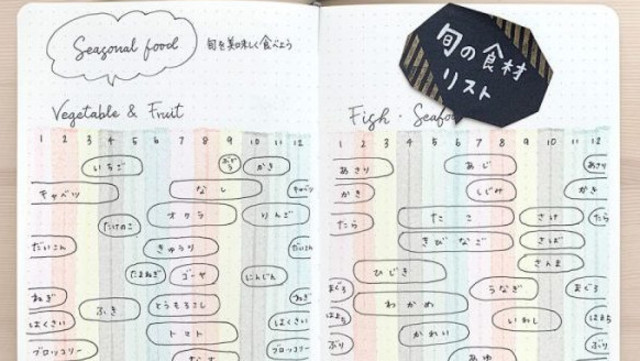 Seasonal food
旬を美味しく食べよう
旬の食材
リスト
Vegetable & Fruit
1 2 3 4 5 6 7 8 9 10 11 12
いちご ぶどう かき
キャベツ なし キャベツ
たけのこ オクラ りんご
だいこん きゅうり だいこん
たまねぎ ゴーヤ にんじん
ねぎ ふき とうもろこし ねぎ
はくさい トマト はくさい
ブロッコリー なす ブロッコリー
Fish・Seafood
1 2 3 4 5 6 7 8 9 10 11 12
あさり あじ あさり
かき しじみ かき
たら たこ さけ たら
きびなご さば
さんま
まぐろ ひじき うなぎ まぐろ
はまち わかめ いわし はまち
ぶり かれい ぶり
あゆ